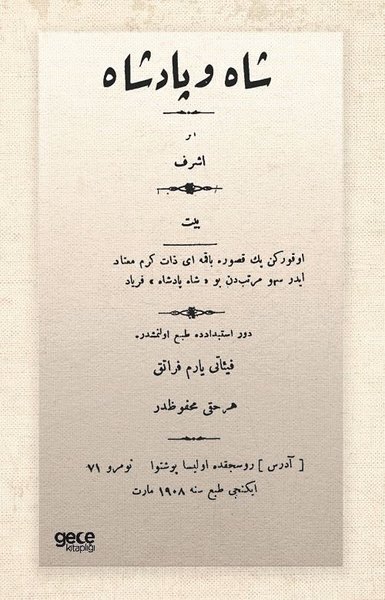 شاه و پادشاه
اثر
اشرف
بیت
اوقورکن پك قصوره باقمه ای ذات کرم معتاد
ایدر سهو مرتب‌دن بو « شاه پادشاه » فریاد
دور استبدادده طبع اولنمشدر.
فیئاتی یارم فرانقدر
هر حقی محفوظدر
[ آدرس ] روسجقده اولیسا پوشنوا نومرو ٧١
ایکنجی طبع سنه ١٩٠٨ مارت
gece
kitaplığı